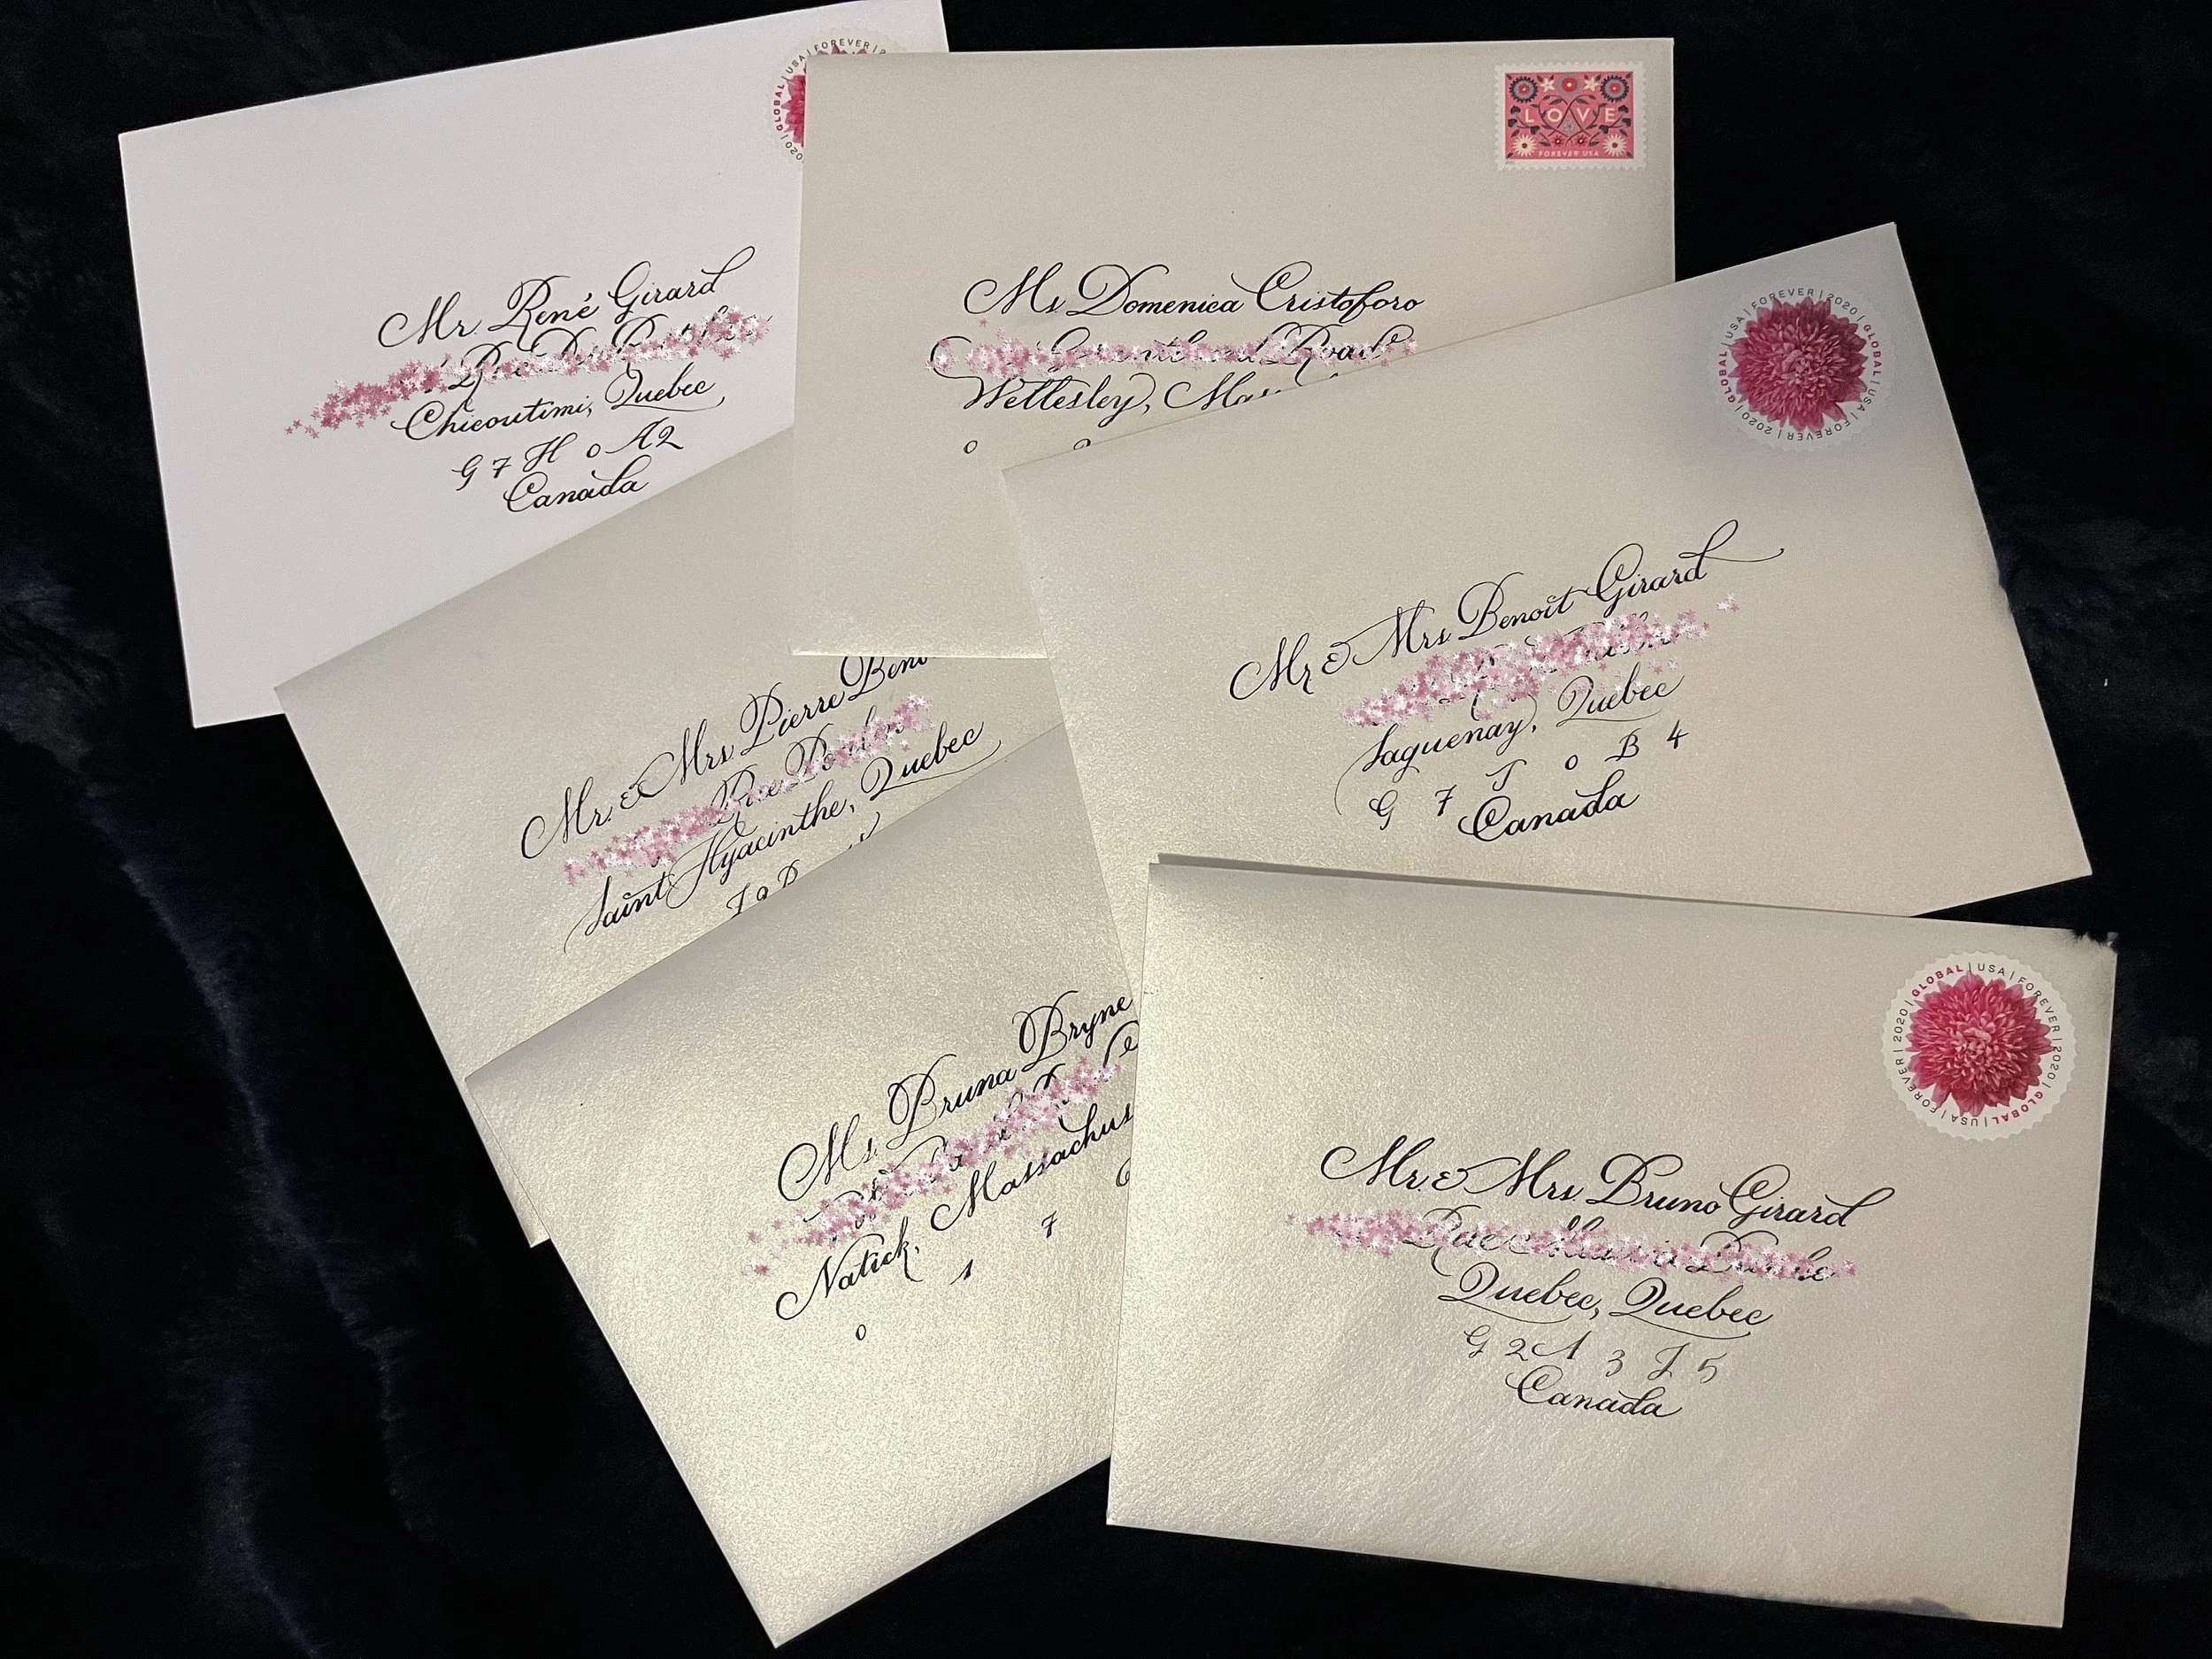 GLOBAL | USA | FOREVER | 2020
Mr René Girard
Chicoutimi, Quebec
G7H 0A2
Canada
LOVE
FOREVER USA
Ms. Domenica Cristoforo
Road
Wellesley,
0
GLOBAL | USA | FOREVER | 2020 | GLOBAL | USA | FOREVER | 2020
Mr & Mrs Benoît Girard
Saguenay, Quebec
G 7 J 0 B 4
Canada
Mr. & Mrs Pierre
Rue
Saint Hyacinthe, Quebec
Ms. Bruna Bryne
Natick,
0 1 7
GLOBAL | USA | FOREVER | 2020 | GLOBAL | USA | FOREVER | 2020
Mr. & Mrs. Bruno Girard
Rue
Quebec, Quebec
G 2 A 3 J 5
Canada